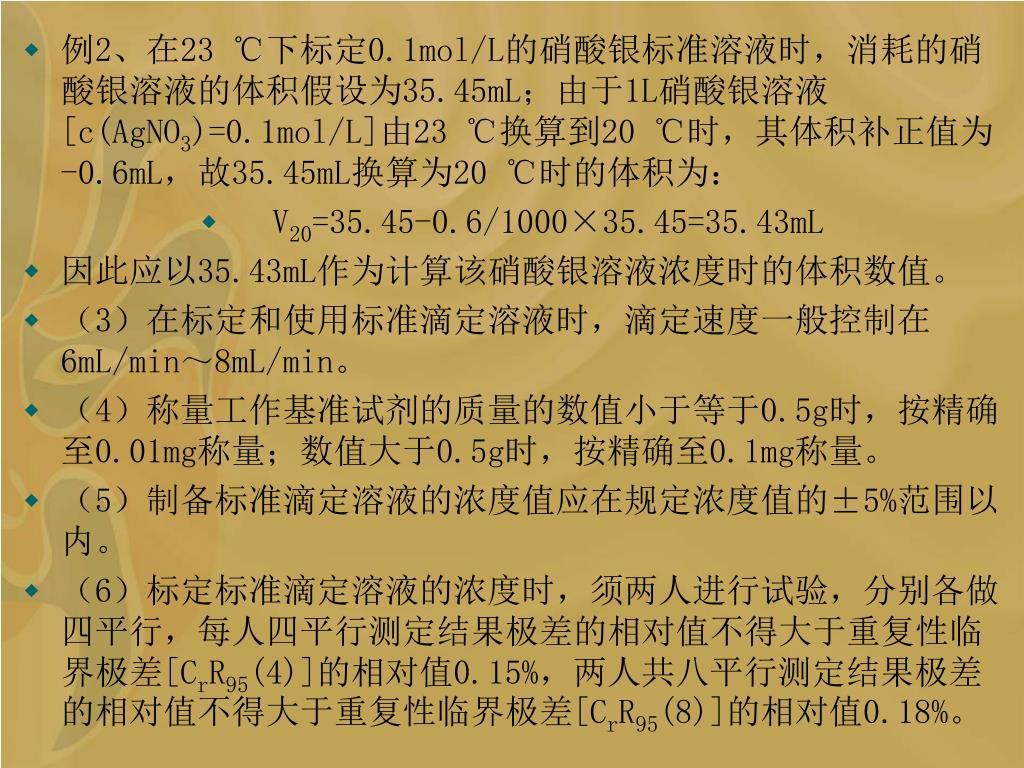 例2、在23 ℃下标定0.1mol/L的硝酸银标准溶液时，消耗的硝
酸银溶液的体积假设为35.45mL；由于1L硝酸银溶液
[c(AgNO₃)=0.1mol/L]由23 ℃换算到20 ℃时，其体积补正值为
-0.6mL，故35.45mL换算为20 ℃时的体积为：
V₂₀=35.45-0.6/1000×35.45=35.43mL
因此应以35.43mL作为计算该硝酸银溶液浓度时的体积数值。
（3）在标定和使用标准滴定溶液时，滴定速度一般控制在
6mL/min～8mL/min。
（4）称量工作基准试剂的质量的数值小于等于0.5g时，按精确
至0.01mg称量；数值大于0.5g时，按精确至0.1mg称量。
（5）制备标准滴定溶液的浓度值应在规定浓度值的±5%范围以
内。
（6）标定标准滴定溶液的浓度时，须两人进行试验，分别各做
四平行，每人四平行测定结果极差的相对值不得大于重复性临
界极差[CᵣR₉₅(4)]的相对值0.15%，两人共八平行测定结果极差
的相对值不得大于重复性临界极差[CᵣR₉₅(8)]的相对值0.18%。